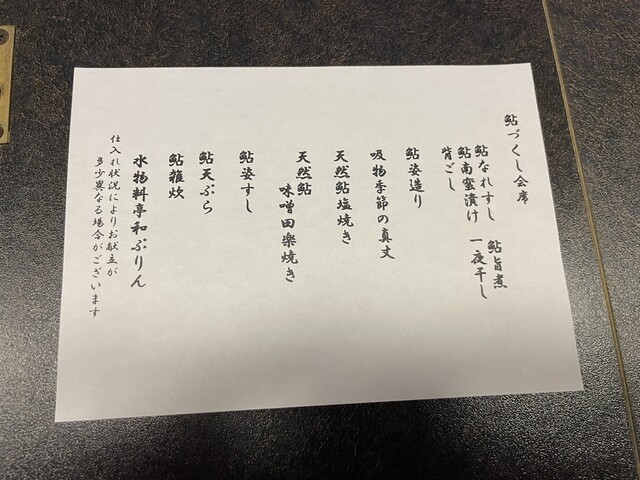 鮎づくし会席
鮎なれすし　鮎旨煮
鮎南蛮漬け　一夜干し
背ごし
鮎姿造り
吸物季節の真丈
天然鮎塩焼き
天然鮎
味噌田楽焼き
鮎姿すし
鮎天ぷら
鮎雑炊
水物料亭和ぷりん
仕入れ状況によりお献立が
多少異なる場合がございます